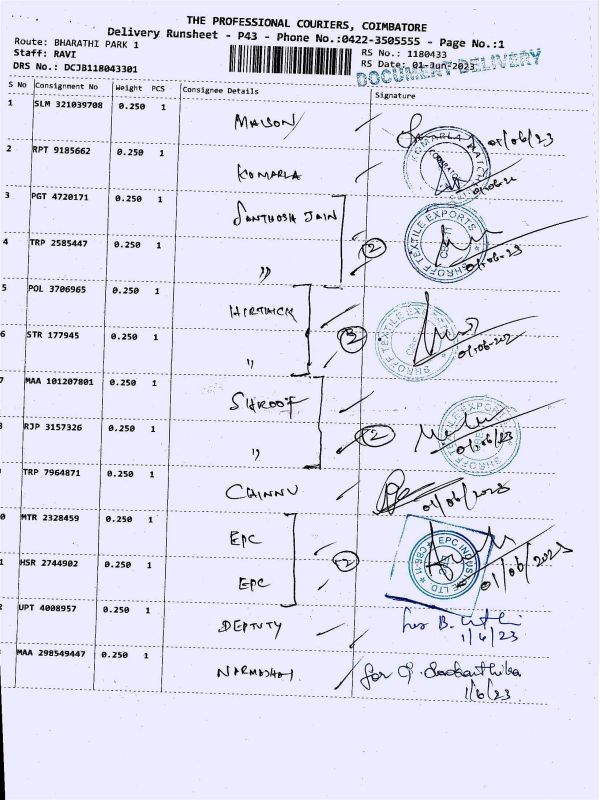 THE PROFESSIONAL COURIERS, COIMBATORE
Delivery Runsheet - P43 - Phone No.:0422-3505555 - Page No.:1
Route: BHARATHI PARK 1
Staff: RAVI
DRS No.: DCJB118043301
RS No.: 1180433
RS Date: 01-Jun-2023
DOCUMENT DELIVERY
S No Consignment No Weight PCS Consignee Details Signature
1 SLM 321039708 0.250 1
01/06/23
2 RPT 9185662 0.250 1 KOMARLA
3 PGT 4720171 0.250 1 SANTHOSH JAIN
SHROFF TEXTILE EXPORTS
01-06-23
4 TRP 2585447 0.250 1 "
2
5 POL 3706965 0.250 1
SHROFF TEXTILE EXPORTS
6 STR 177945 0.250 1 "
MAA 101207801 0.250 1 SHROOF
SHROFF TEXTILE EXPORTS
RJP 3157326 0.250 1 "
2
01/06/23
TRP 7964871 0.250 1 CHINNU
01/06/2023
MTR 2328459 0.250 1 EPC
EPC INDUSTRIE LTD
2
HSR 2744902 0.250 1 EPC
01/06/2023
UPT 4008957 0.250 1 DEPTUTY
1/6/23
MAA 298549447 0.250 1
for
1/6/23